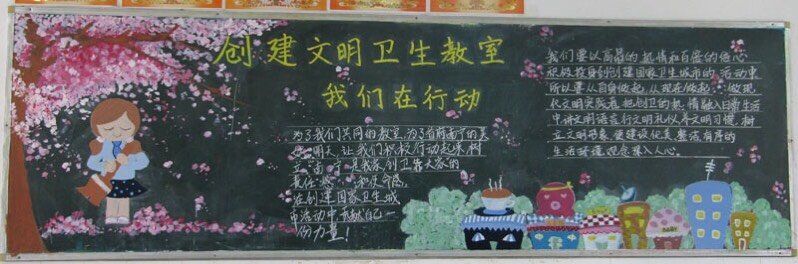 创建文明卫生教室
我们在行动
为了我们共同的教室,为了
明天,让我们积极行动起来,树
是我家,创卫靠大家的
责任
在创建国家卫生城
市活动中,贡献自己一
份力量!
我们要以高昂的热情和百倍的信心
积极投身到创建国家卫生城市的活动中
所以要从自身做起,从现在做起,做现
代文明实践者,把创卫的热情融入日常生活
中,讲文明语言,行文明礼仪,养文明习惯,树
立文明形象,使建设优美整洁有序的
生活环境观念深入人心。
BABY